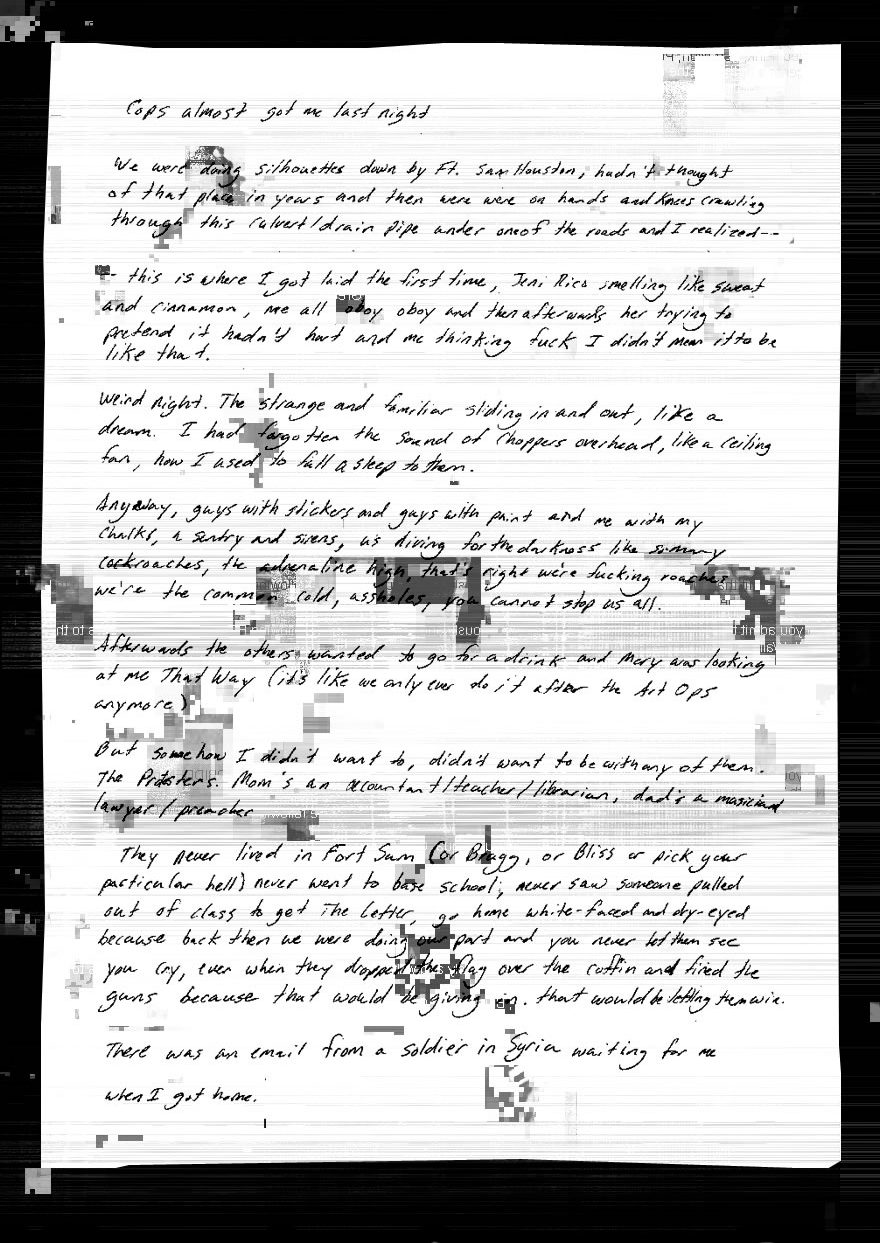 Cops almost got me last night
We were doing silhouettes down by Ft. Sam Houston, hadn't thought
of that place in years and then were were on hands and knees crawling
through this culvert/drain pipe under one of the roads and I realized--
-- this is where I got laid the first time, Jeni Rico smelling like sweat
and cinnamon, me all oboy oboy and then afterwards her trying to
pretend it hadn't hurt and me thinking fuck I didn't mean it to be
like that.
Weird night. The strange and familiar sliding in and out, like a
dream. I had forgotten the sound of choppers overhead, like a ceiling
fan, how I used to fall asleep to them.
Anyway, guys with stickers and guys with paint and me with my
chalks, a sentry and sirens, us diving for the darkness like
cockroaches, the adrenaline high, that's right we're fucking roaches
we're the common cold, assholes, you cannot stop us all.
Afterwards the others wanted to go for a drink and Mary was looking
at me That Way (it's like we only ever do it after the Art Ops
anymore)
But somehow I didn't want to, didn't want to be with any of them.
The Protesters. Mom's an accountant/teacher/librarian, dad's a musician
lawyer/preacher
They never lived in Fort Sam (or Bragg, or Bliss or pick your
particular hell) never went to base school, never saw someone pulled
out of class to get The Letter, go home white-faced and dry-eyed
because back then we were doing our part and you never let them see
you cry, even when they dropped the flag over the coffin and fired the
guns because that would be giving in. that would be letting them win.
There was an email from a soldier in Syria waiting for me
when I got home.